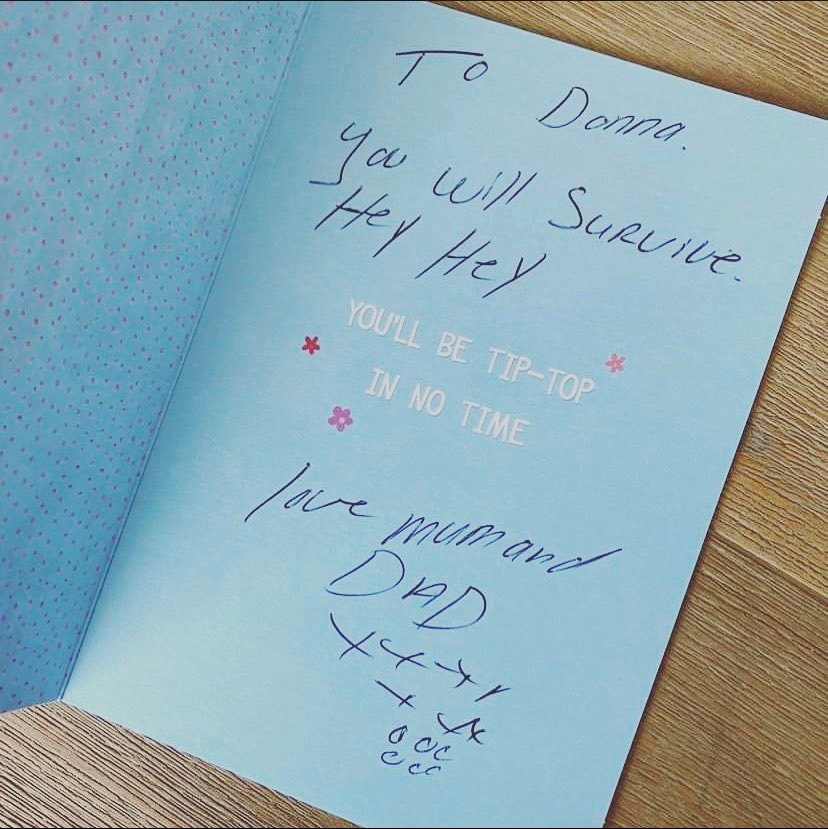 To Donna.
You will Survive.
Hey Hey
YOU'LL BE TIP-TOP
IN NO TIME
love mum and
DAD
xxxx
x xx
o o o
o o o